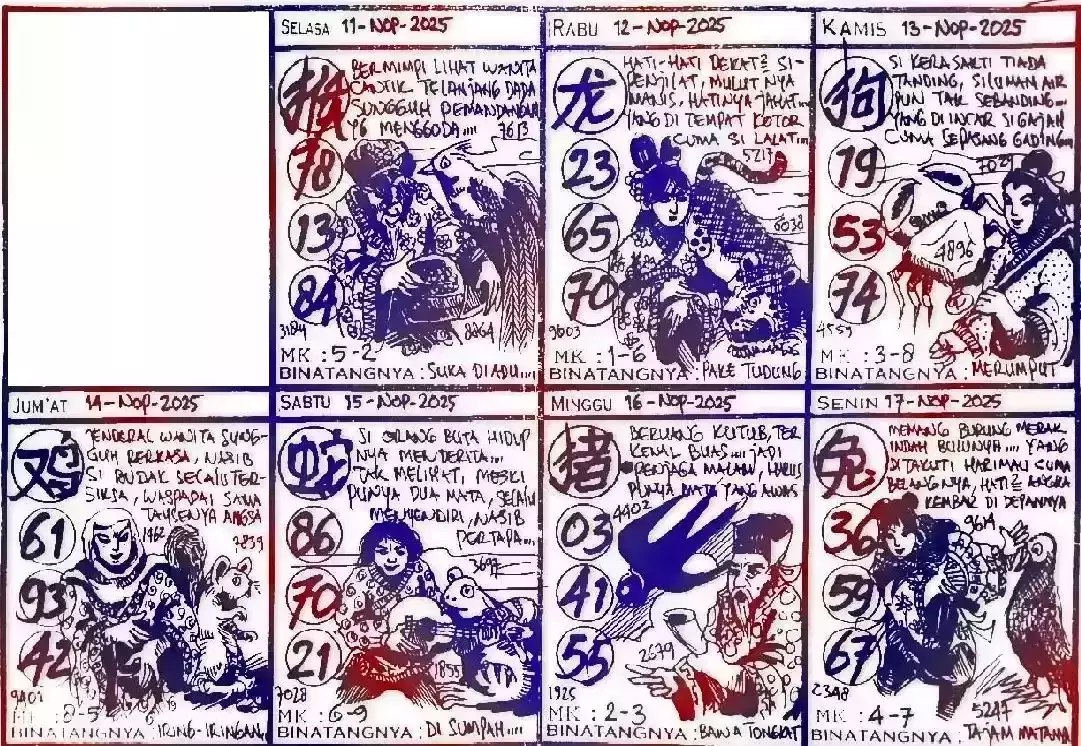 SELASA 11-NOP-2025
猴
BERMIMPI LIHAT WANITA
CANTIK TELANJANG DADA
SUNGGUH PEMANDANGAN
YG MENGGODA.... 7613
78
13
84
3184
8864
MK : 5-2
BINATANGNYA : SUKA DIADU....
RABU 12-NOP-2025
龙
HATI-HATI DEKAT² SI-
PENJILAT, MULUT NYA
MANIS, HATINYA JAHAT...
YANG DI TEMPAT KOTOR
CUMA SI LALAT...
5213
23
65
6038
70
9603
MK : 1-6
BINATANGNYA : PAKE TUDUNG
KAMIS 13-NOP-2025
狗
SI KERA SAKTI TIADA
TANDING, SILUMAN AIR
PUN TAK SEBANDING...
YANG DI INCAR SI GAJAH
CUMA SEPASANG GADING...
7029
19
53
4896
74
4559
MK : 3-8
BINATANGNYA : MERUMPUT
JUM'AT 14-NOP-2025
鸡
JENDERAL WANITA SUNG-
GUH PERKASA, NASIB
SI BUDAK SECALU TER-
SIKSA, WASPADAI SAMA
ANGSA
61
1962
7839
93
42
9407
MK : 0-5
BINATANGNYA : IRING-IRINGAN
SABTU 15-NOP-2025
蛇
SI ORANG BUTA HIDUP
NYA MENDERITA...
TAK MELIHAT, MESKI
PUNYA DUA MATA, SELALU
MENYENDIRI, NASIB
PERTAPA...
86
3697
70
21
1855
7028
MK : 6-9
BINATANGNYA : DI SUMPAH....
MINGGU 16-NOP-2025
猪
BERUANG KUTUB, TER
KENAL BUAS.... JADI
PENJAGA MALAM, HARUS
PUNYA MATA YANG AWAS
4402
03
41
55
2679
1925
MK : 2-3
BINATANGNYA : BAWA TONGKAT
SENIN 17-NOP-2025
兔
MEMANG BURUNG MERAK
INDAH BULUNYA.... YANG
DITAKUTI HARIMAU CUMA
BELANGNYA, HATI² ANGKA
KEMBAR DI DEPANNYA
9614
36
59
67
2348
5247
MK : 4-7
BINATANGNYA : TAJAM MATANYA